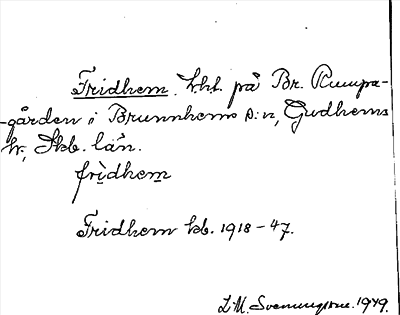 Fridhem, lht. på Br. Rumpa-
-gården i Brunnhems s:n, Gudhems
hr, Skb. län.
fridhem
Fridhem kb. 1918-47.
L.M. Svenungsson. 1949.